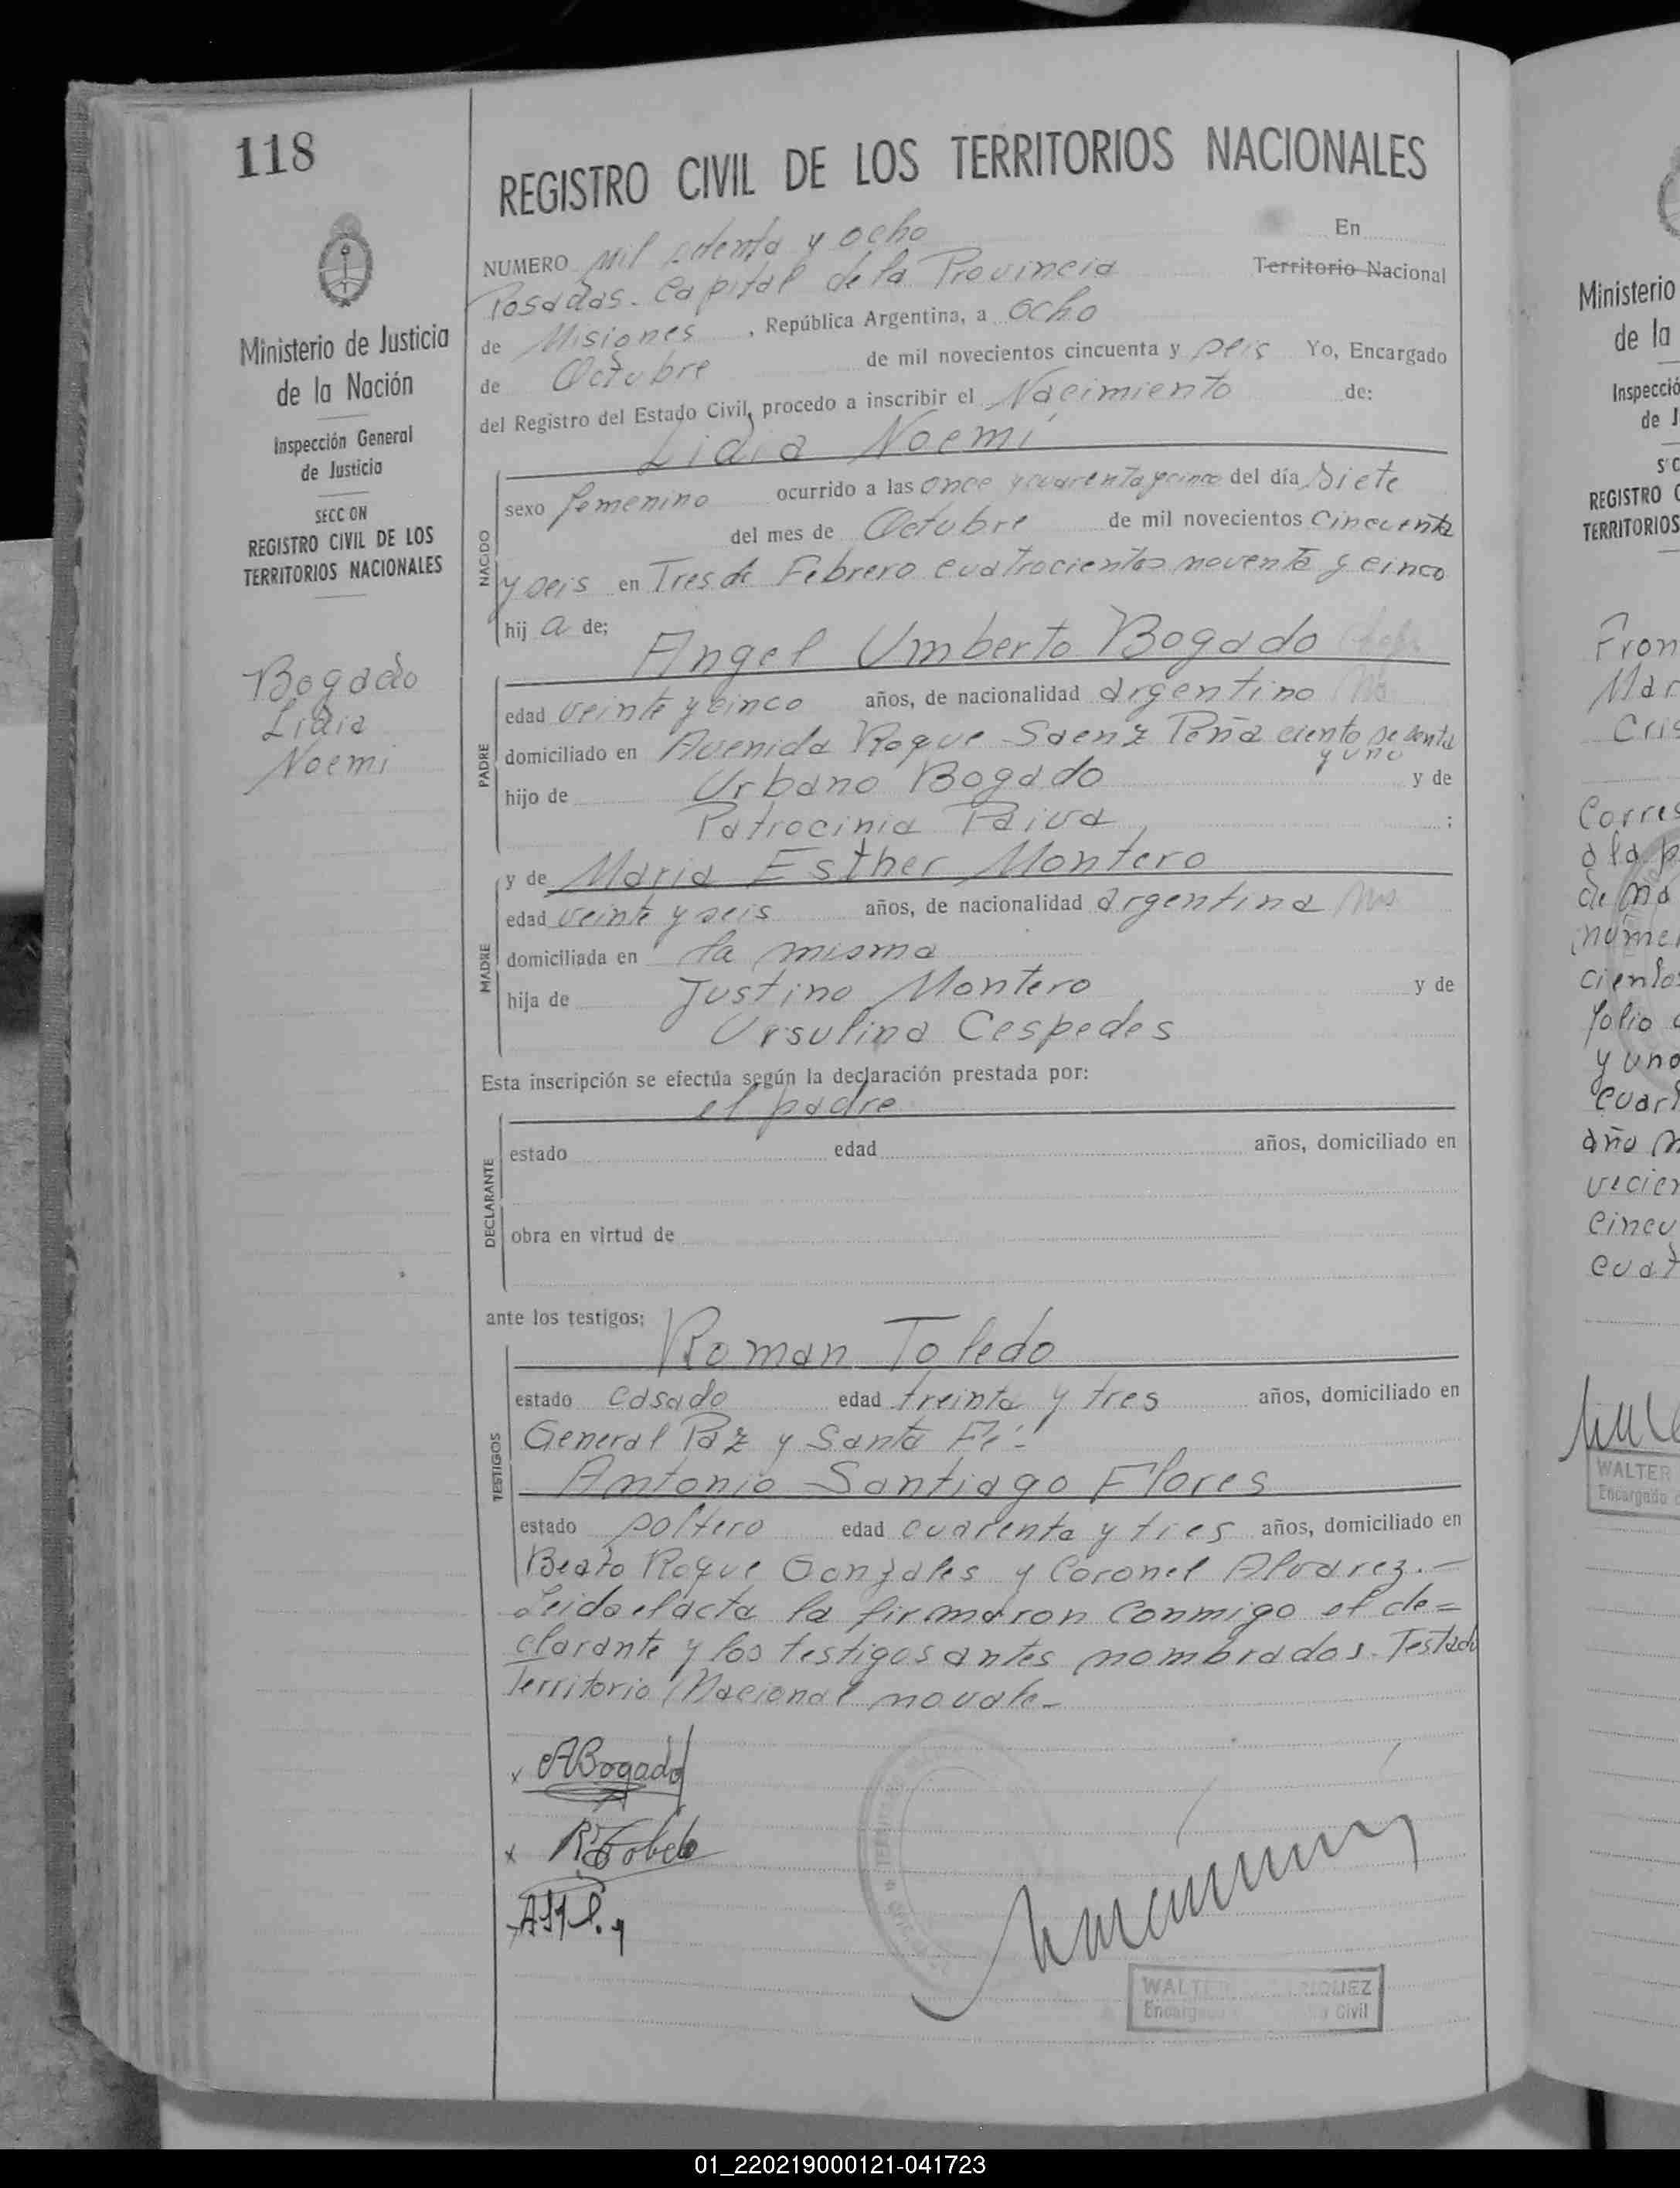 118
Ministerio de Justicia
de la Nación
Inspección General
de Justicia
SECCION
REGISTRO CIVIL DE LOS
TERRITORIOS NACIONALES
Bogado
Lidia
Noemi
REGISTRO CIVIL DE LOS TERRITORIOS NACIONALES
NUMERO mil setenta y ocho En
Posadas. Capital de la Provincia Territorio Nacional
de Misiones, República Argentina, a ocho
de Octubre de mil novecientos cincuenta y seis Yo, Encargado
del Registro del Estado Civil, procedo a inscribir el Nacimiento de:
Lidia Noemí
NACIDO
sexo femenino ocurrido a las once y cuarenta y cinco del día siete
del mes de Octubre de mil novecientos cincuenta
y seis en Tres de Febrero cuatrocientos noventa y cinco
hij a de;
Angel Umberto Bogado
PADRE
edad veinte y cinco años, de nacionalidad argentino
domiciliado en Avenida Roque Saenz Peña ciento sesenta
y uno
hijo de Urbano Bogado y de
Patrocinia Paiva ;
MADRE
y de Maria Esther Montero
edad veinte y seis años, de nacionalidad argentina
domiciliada en la misma
hija de Justino Montero y de
Ursulina Cespedes
Esta inscripción se efectúa según la declaración prestada por:
el padre
DECLARANTE
estado edad años, domiciliado en
obra en virtud de
ante los testigos;
Roman Toledo
TESTIGOS
estado casado edad treinta y tres años, domiciliado en
General Paz y Santa Fé.-
Antonio Santiago Flores
estado soltero edad cuarenta y tres años, domiciliado en
Beato Roque Gonzales y Coronel Alvarez.-
Leida el acta la firmaron conmigo el de=
clarante y los testigos antes nombrados. Testado
Territorio Nacional no vale-
x ABogado
x RToledo
WALTER
Encargado Civil
Ministerio
de la
REGISTRO
TERRITORIOS
WALTER
Encargado
01_220219000121-041723